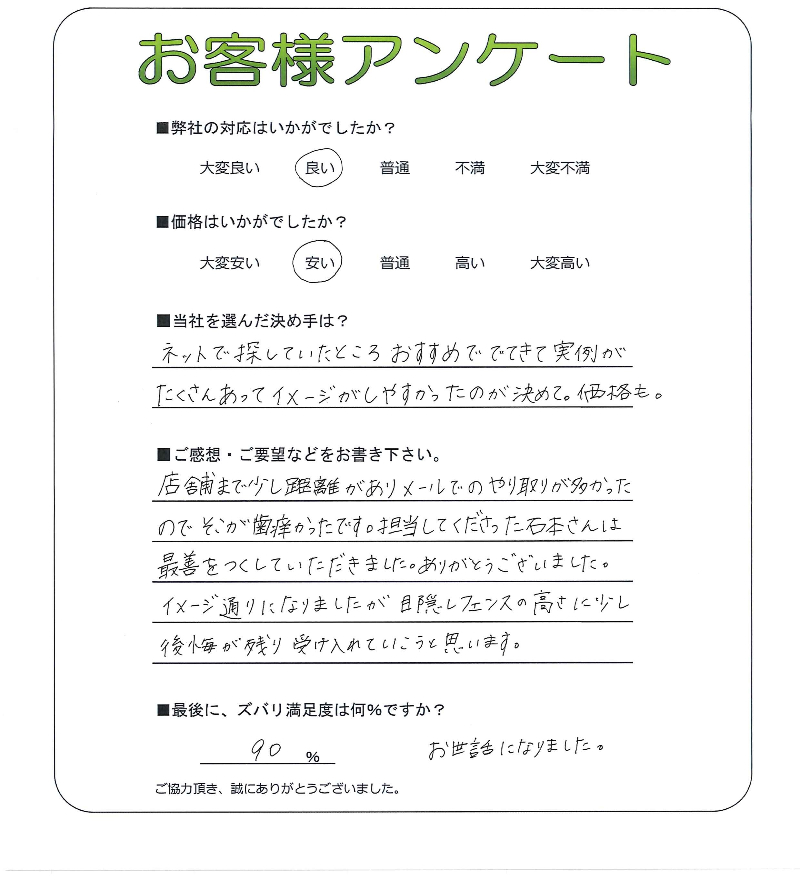 お客様アンケート
■弊社の対応はいかがでしたか？
大変良い 良い 普通 不満 大変不満
■価格はいかがでしたか？
大変安い 安い 普通 高い 大変高い
■当社を選んだ決め手は？
ネットで探していたところ おすすめででてきて実例が
たくさんあってイメージがしやすかったのが決めて。価格も。
■ご感想・ご要望などをお書き下さい。
店舗まで少し距離がありメールでのやり取りが多かった
のでそこが歯痒かったです。担当してくださった石本さんは
最善をつくしていただきました。ありがとうございました。
イメージ通りになりましたが 目隠しフェンスの高さに少し
後悔が残り 受け入れていこうと思います。
■最後に、ズバリ満足度は何％ですか？
90 % お世話になりました。
ご協力頂き、誠にありがとうございました。